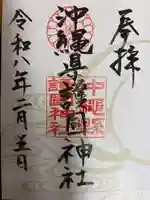 奉拝
沖縄県護國神社
沖縄縣
護國神社
令和八年二月五日